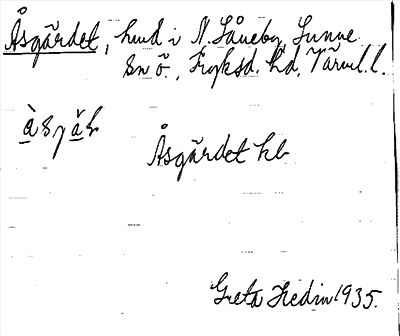 Åsgärdet, hmd i N. Låneby, Sunne
sn ö., Fryksd. hd, Värml. l.
Åsgärdet kb
Greta Hedin 1935.